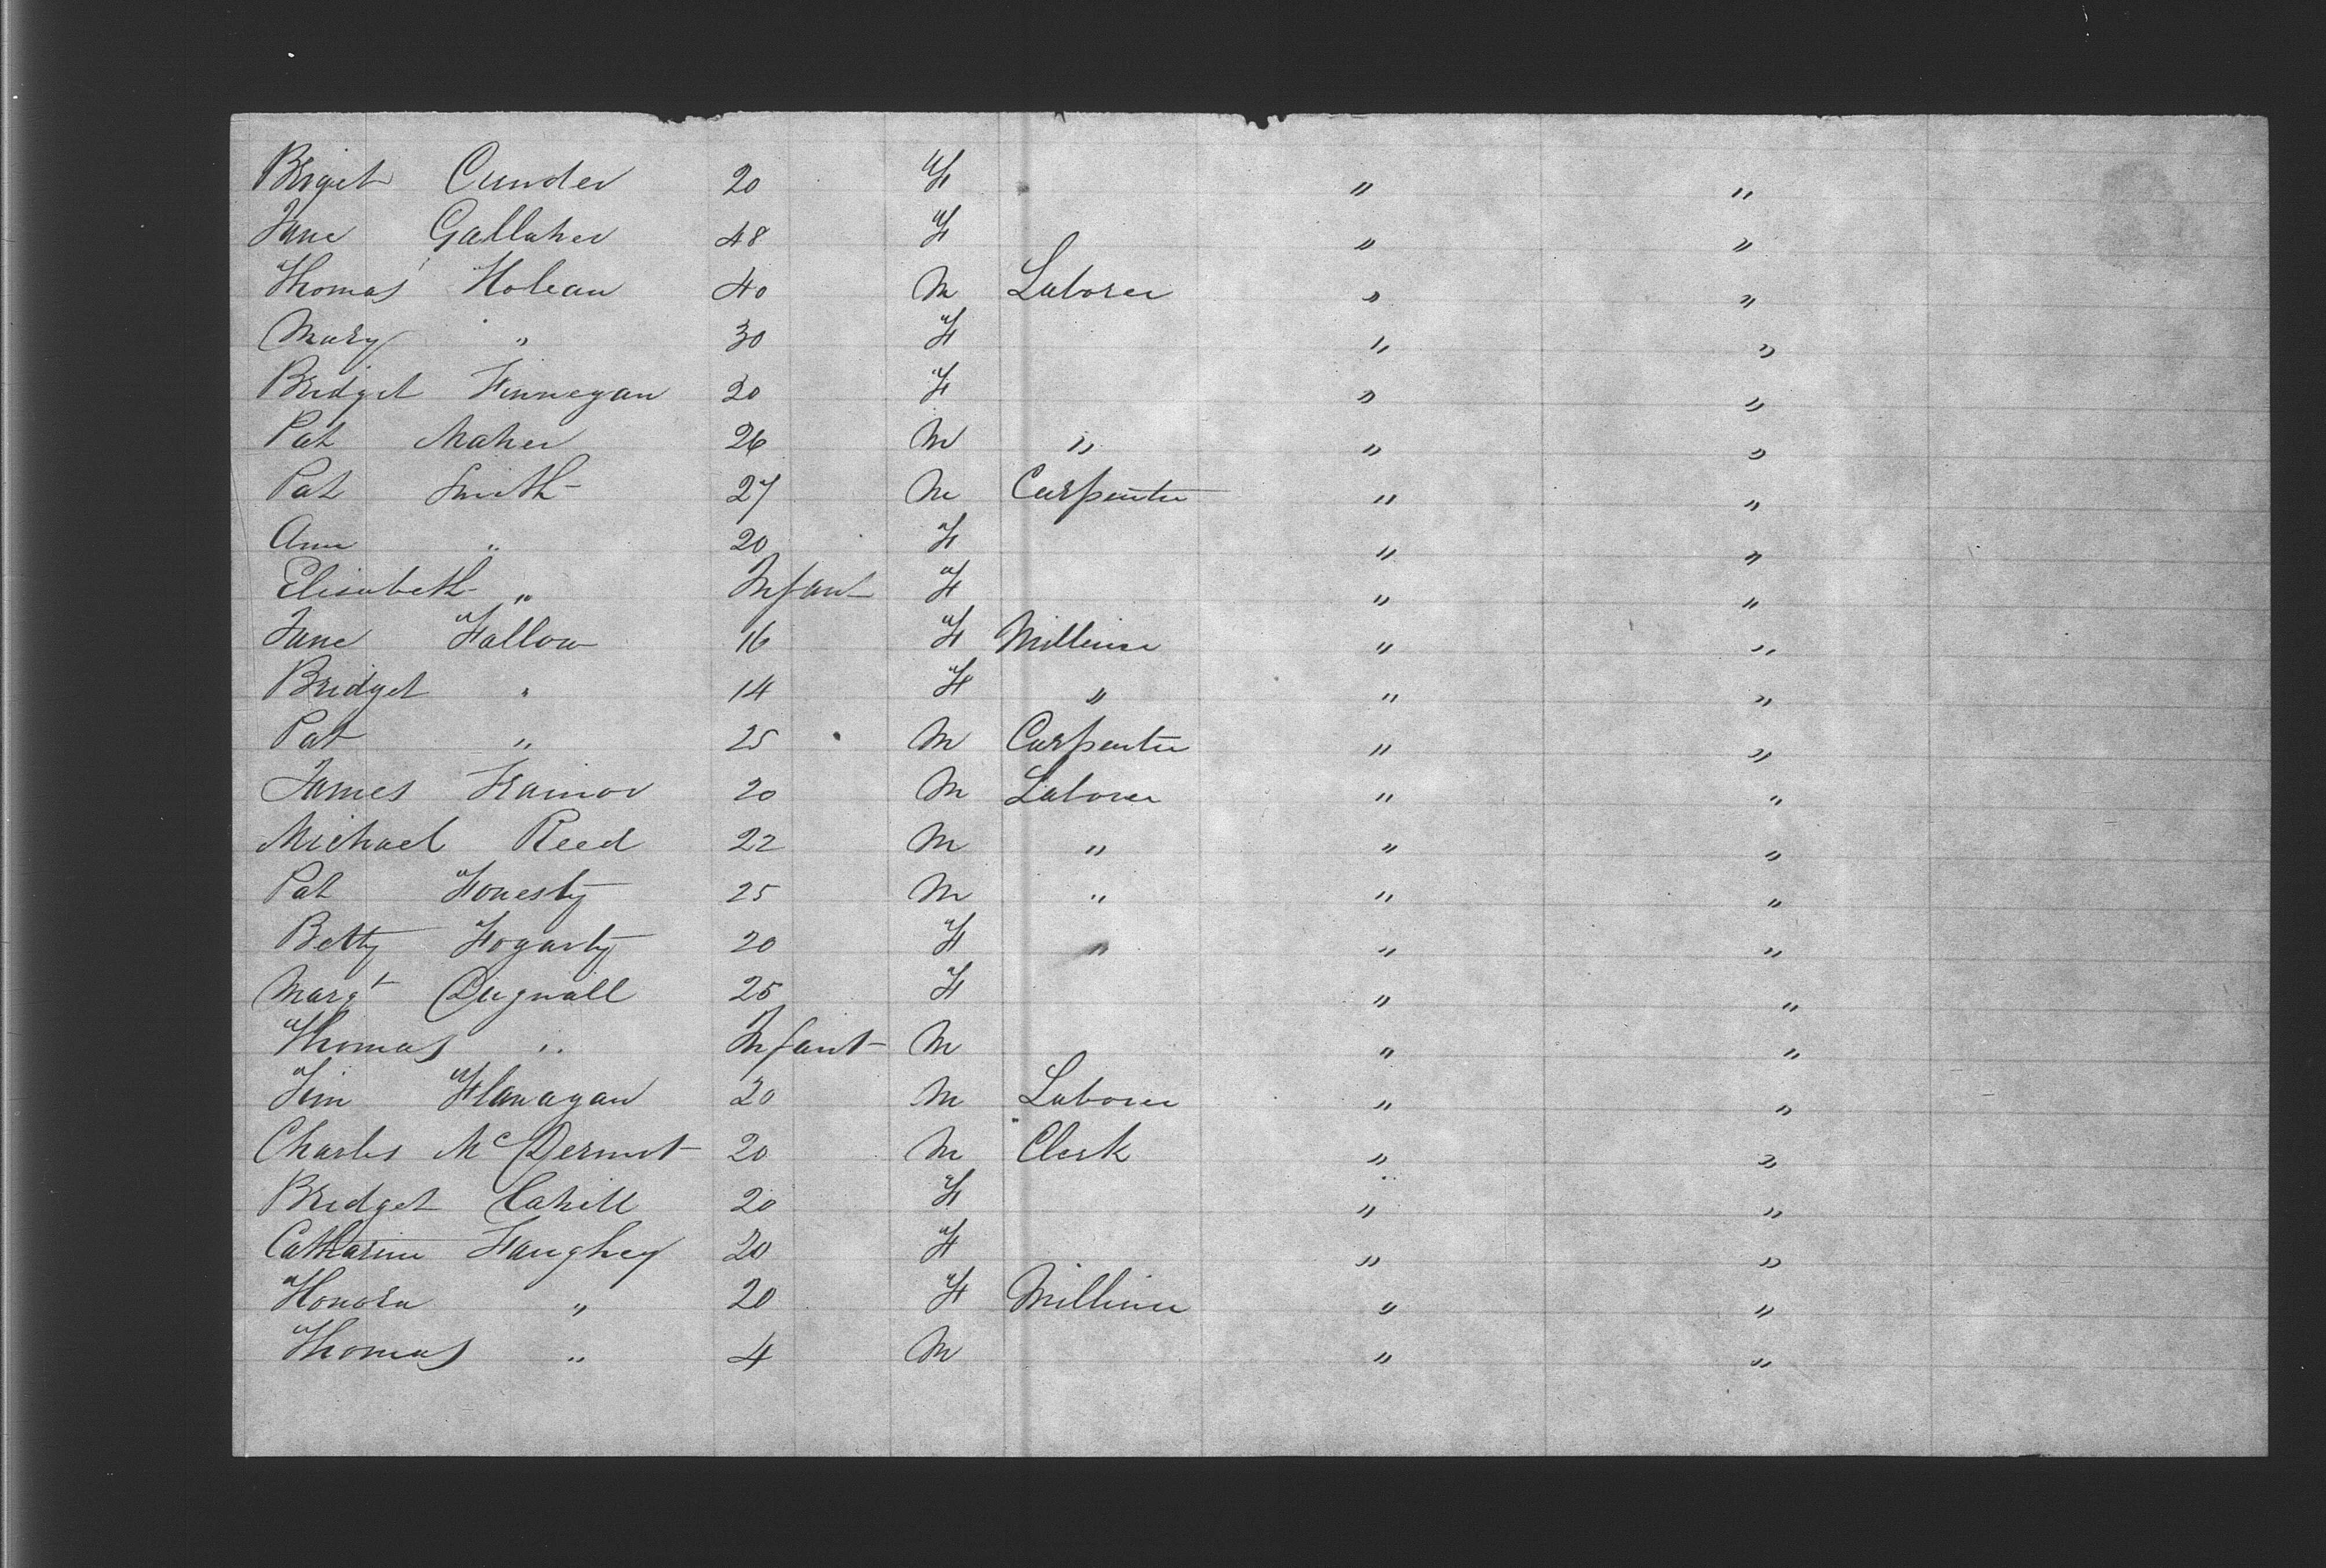 Briget Cunder 20 F " "
Jane Gallaher 48 F " "
Thomas Holean 40 M Laborer " "
Mary " 30 F " "
Bridget Finnegan 20 F " "
Pat Maher 26 M " " "
Pat Smith 27 M Carpenter " "
Ann " 20 F " "
Elisabeth " Infant F " "
Jane Fallow 16 F Milliner " "
Bridget " 14 F " " "
Pat " 25 M Carpenter " "
James Trainor 20 M Laborer " "
Michael Reed 22 M " " "
Pat 25 M " " "
Betty Fogarty 20 F " " "
Margt Dignall 25 F " "
Thomas " Infant M " "
Jim Flanagan 20 M Laborer " "
Charles McDermot 20 M Clerk " "
Bridget Cahill 20 F " "
Catharine Haughey 20 F " "
Honora " 20 F Milliner " "
Thomas " 4 M " "